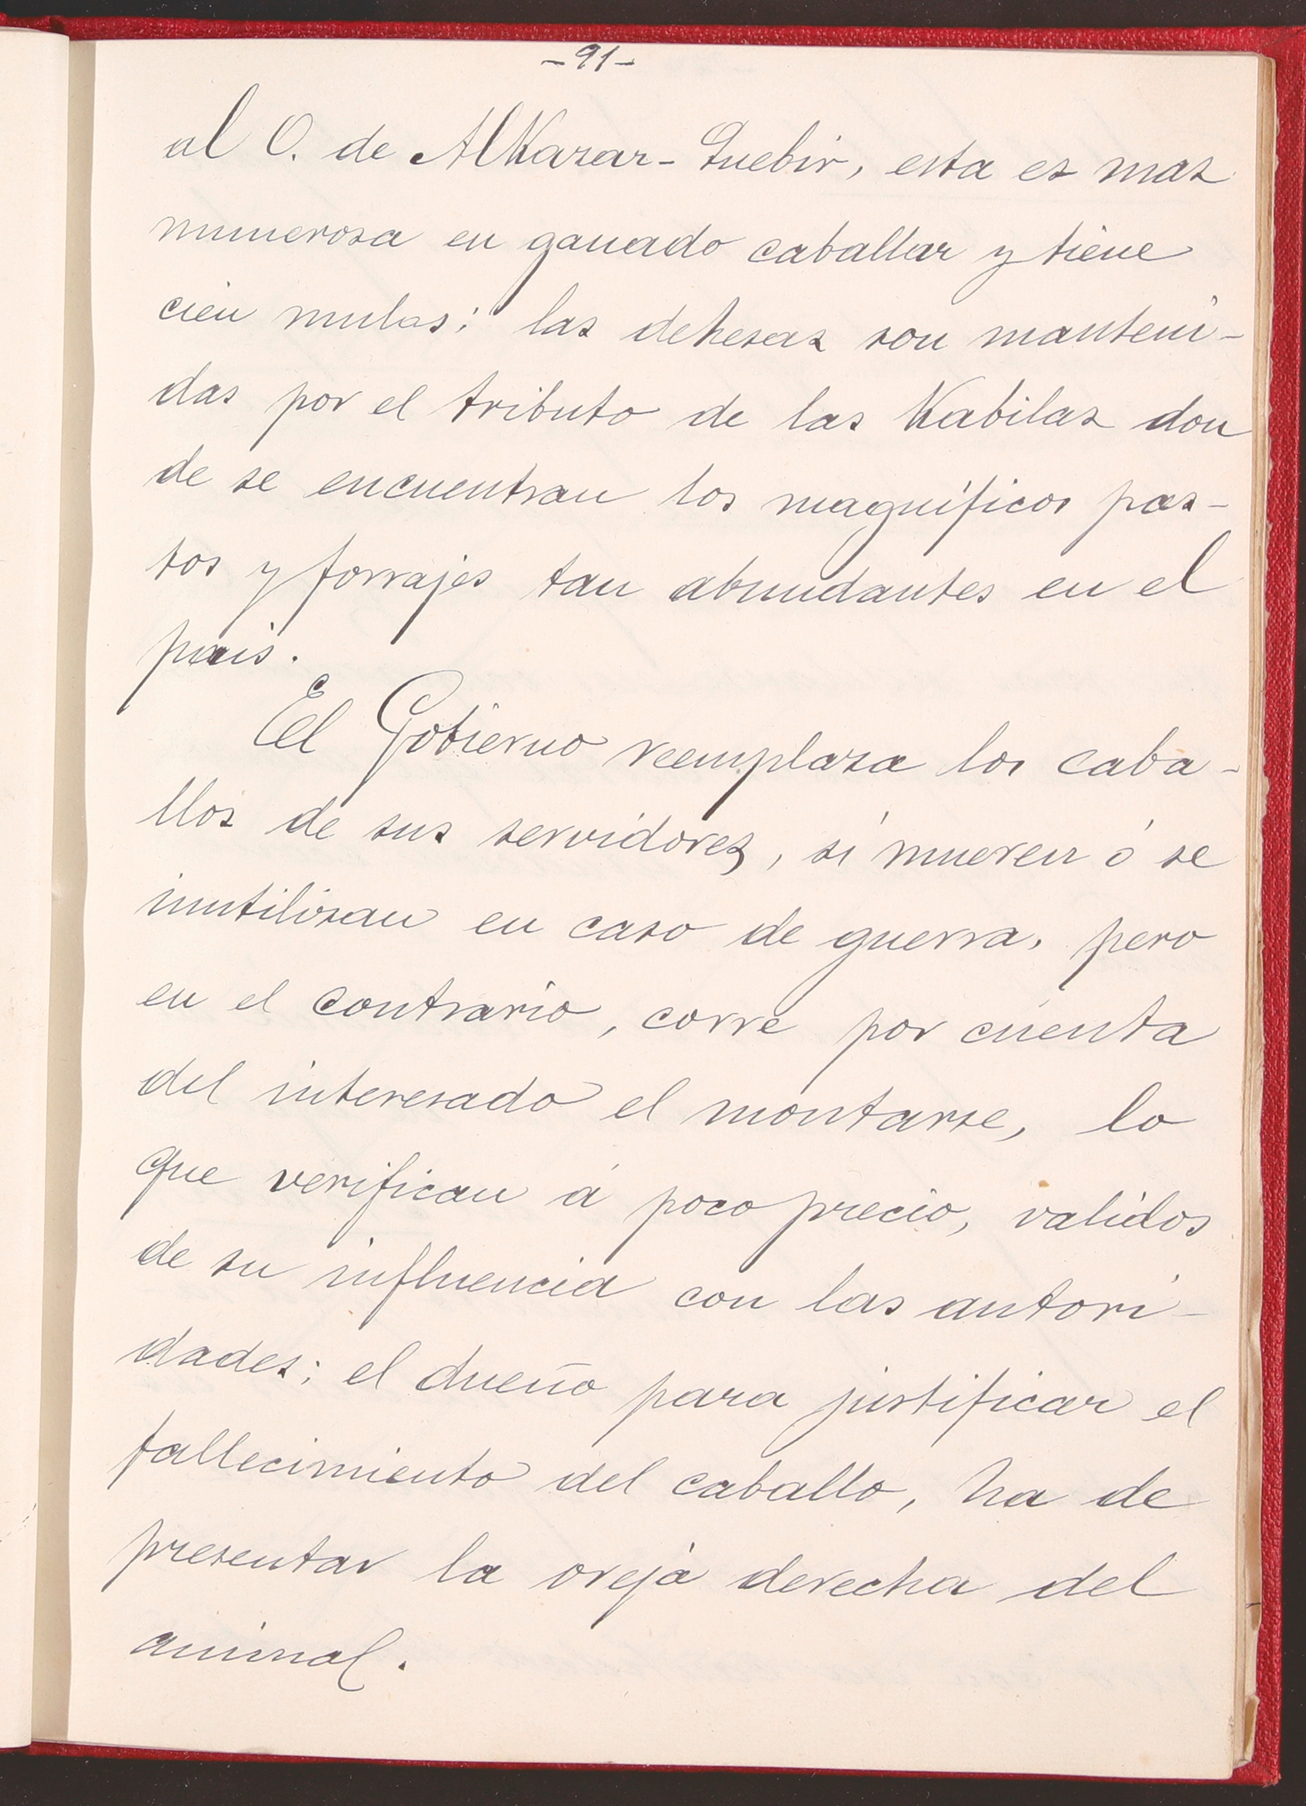 -91-
al O. de AlKazar-Quebir, esta es mas
numerosa en ganado caballar y tiene
cien mulas; las dehesas son manteni-
das por el tributo de las Kabilas don
de se encuentran los magníficos pas-
tos y forrajes tan abundantes en el
pais.
El Gobierno reemplaza los caba-
llos de sus servidores, si mueren ó se
inutilizan en caso de guerra, pero
en el contrario, corre por cuenta
del interesado el montarse, lo
que verifican á poco precio, validos
de su influencia con las autori-
dades; el dueño para justificar el
fallecimiento del caballo, ha de
presentar la oreja derecha del
animal.